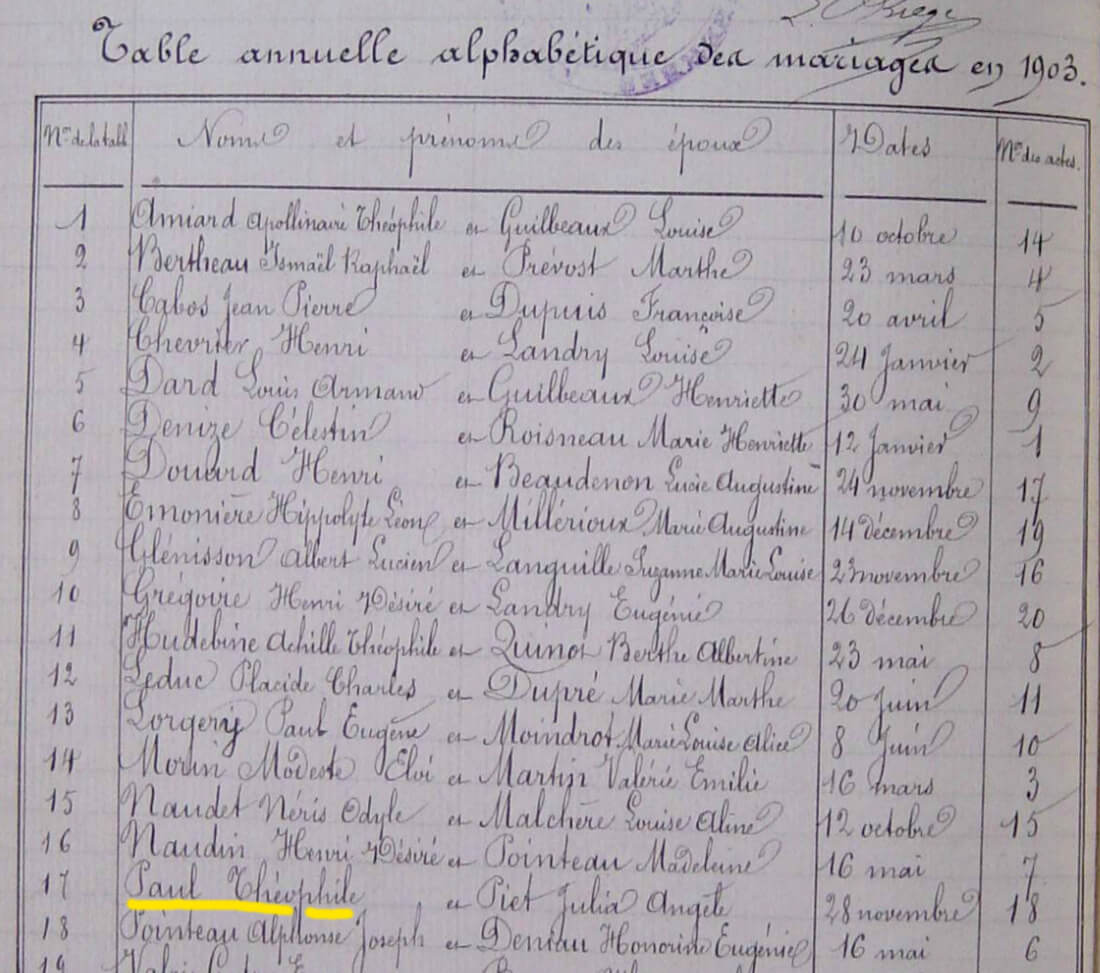 Table annuelle alphabétique des mariages en 1903.
Nos de la table Noms et prénoms des époux Dates Nos des actes.
1 Amiard Apollinaire Théophile et Guilbeaux Louise 10 octobre 14
2 Bertheau Ismaël Raphaël et Prévost Marthe 23 mars 4
3 Cabos Jean Pierre et Dupuis Françoise 20 avril 5
4 Chevrier Henri et Landry Louise 24 Janvier 2
5 Dard Louis Armand et Guilbeaux Henriette 30 mai 9
6 Denize Célestin et Roisneau Marie Henriette 12 Janvier 1
7 Douard Henri et Beaudenon Lucie Augustine 24 novembre 17
8 Emonière Hippolyte Léon et Millérioux Marie Augustine 14 décembre 19
9 Glénisson Albert Lucien et Languille Suzanne Marie Louise 23 novembre 16
10 Grégoire Henri Désiré et Landry Eugénie 26 décembre 20
11 Hudebine Achille Théophile et Quinot Berthe Albertine 23 mai 8
12 Leduc Placide Charles et Dupré Marie Marthe 20 Juin 11
13 Lorgery Paul Eugène et Moindrot Marie Louise Alice 8 Juin 10
14 Morin Modeste Eloi et Martin Valérie Emilie 16 mars 3
15 Naudet Néris Odyle et Malchère Louise Aline 12 octobre 15
16 Naudin Henri Désiré et Pointeau Madeleine 16 mai 7
17 Paul Théophile et Piet Julia Angèle 28 novembre 18
18 Pointeau Alphonse Joseph et Deniau Honorine Eugénie 16 mai 6
19